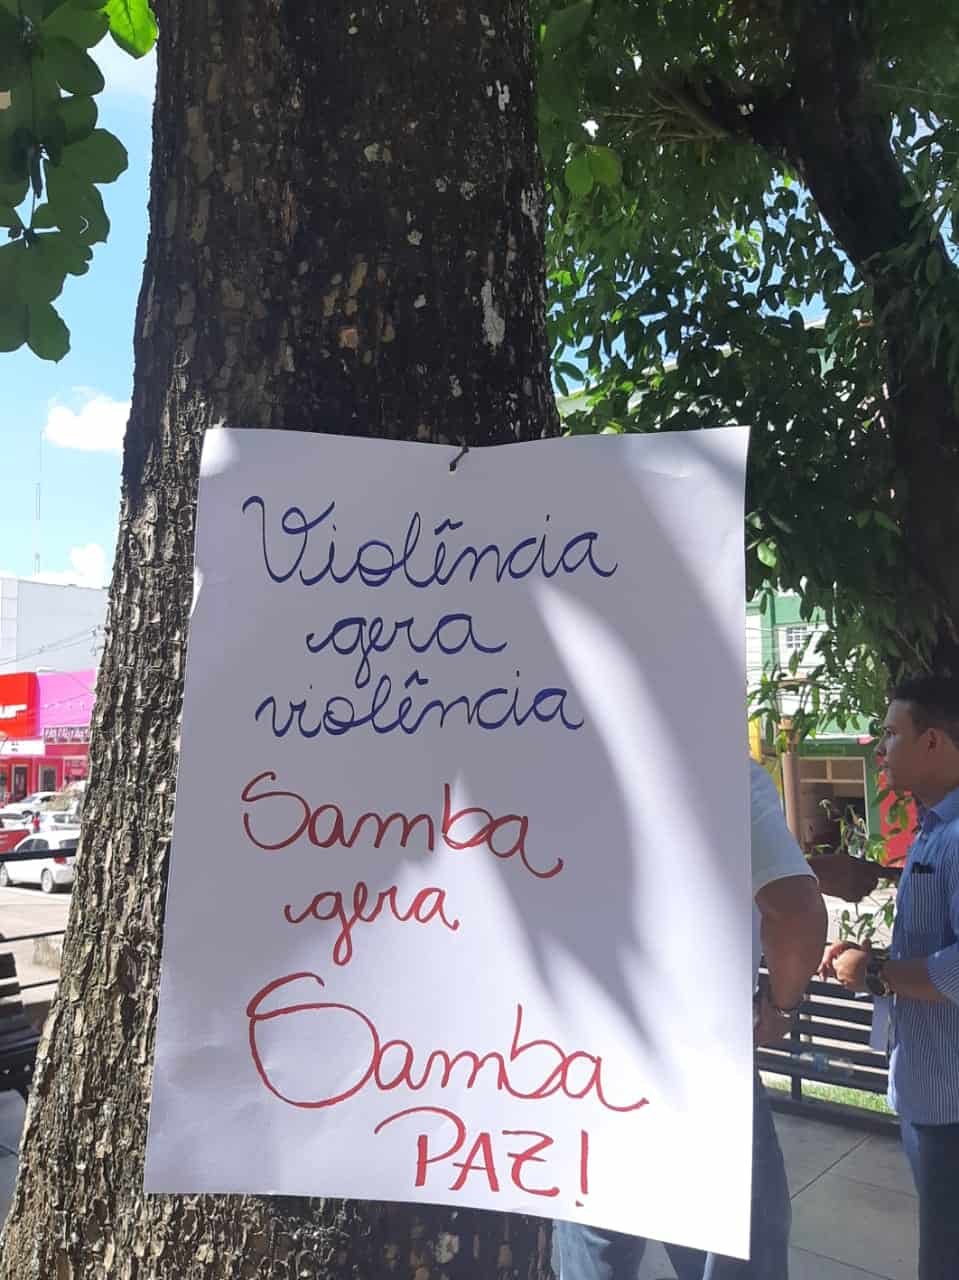 Violência
gera
violência
Samba
gera
Samba
PAZ!